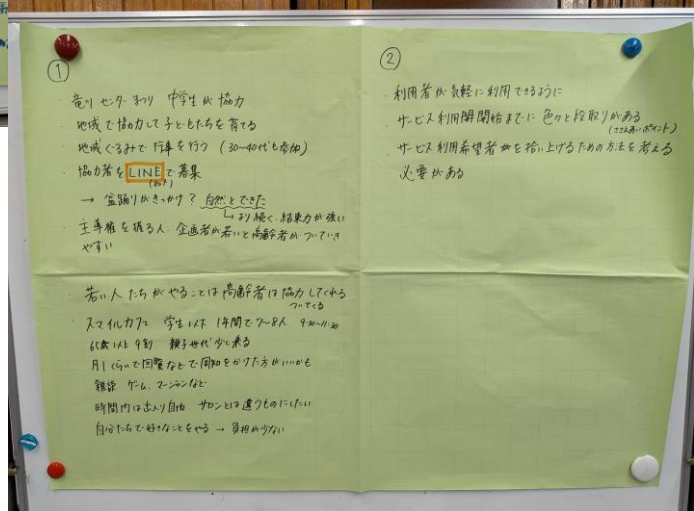 ①
・竜川センターまつり 中学生が協力
・地域で協力して子どもたちを育てる
・地域ぐるみで行事を行う (30~40代も参加)
・協力者をLINEで募集
→ 盆踊りがきっかけ? 自然とできた
↳より続く、結束力が強い
・主導権を握る人、企画者が若いと高齢者がついていき
やすい
・若い人たちがやることは高齢者は協力してくれる
ついてくる
スマイルカフェ 学生以下 1年間で7~8人 9:30~11:30
65歳以上9割 親子世代少し来る
月1くらいで回覧などで周知をかけた方がいいかも
雑談 ゲーム、マージャンなど
時間内は出入り自由 サロンとは違うものにしたい
自分たちで好きなことをやる → 負担が少ない
②
・利用者が気軽に利用できるように
・サービス利用開始までに色々と段取りがある
(ささえあいポイント)
・サービス利用希望者を拾い上げるための方法を考える
必要がある